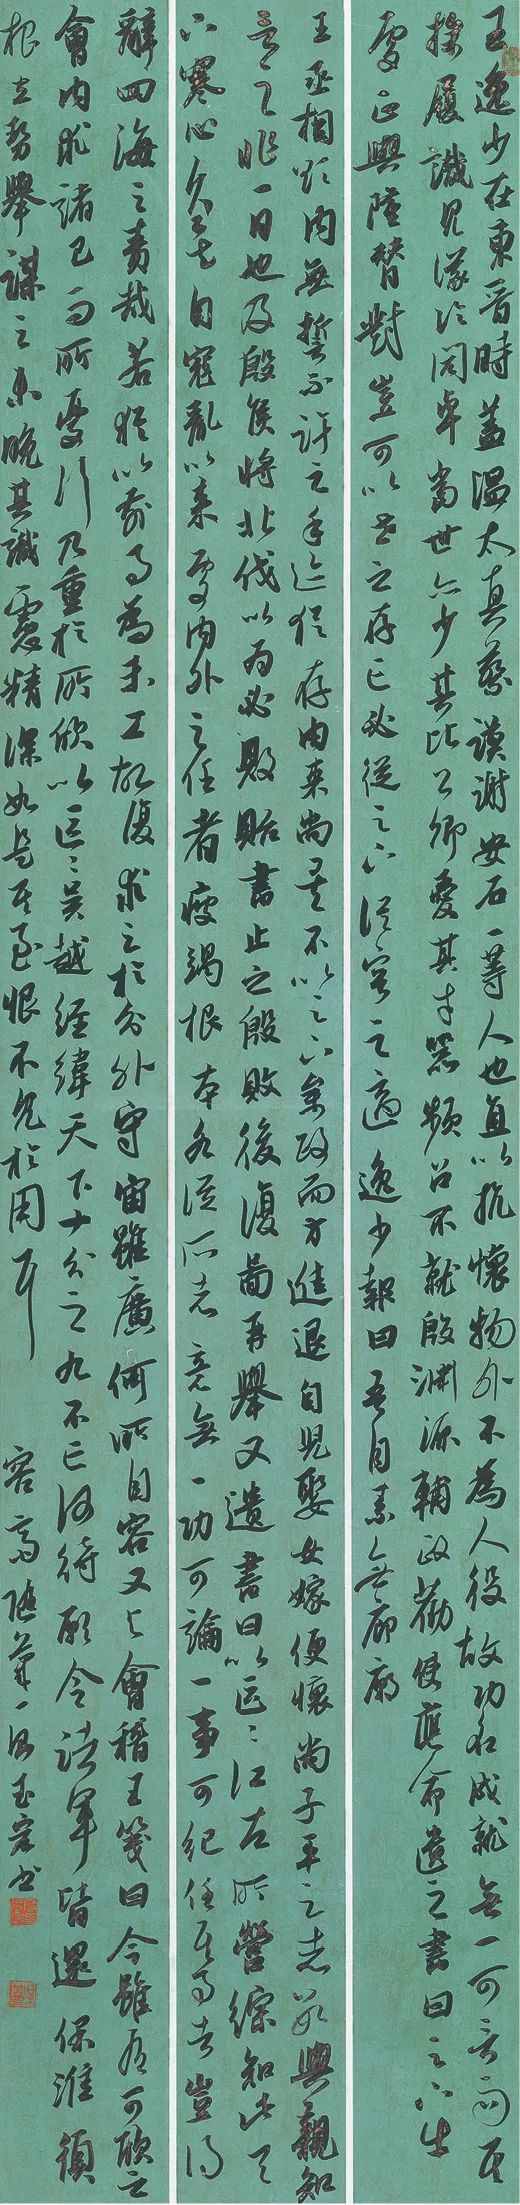 王逸少在東晉時蓋温太真蔡謨謝安石一等人也直以抗懷物外不為人役故功名成就無一可言而其
操履識見議論閎卓當世亦少其比公卿愛其才器頻召不就殷淵源輔政勸使應命遺之書曰足下出
處正與隆替對豈可以世之存亡必從足下從容之適逸少報曰吾自素無廊廟
王丞相欲內無誓不許之手迹猶存由來尚矣不以足下參政而方進退自兒娶女嫁便懷尚子平之志數與親知
言之非一日也及殷侯將北伐以為必敗貽書止之殷敗後復圖再舉又遺書曰以區區江左所營綜如此天
下寒心久矣自寇亂以來處內外之任者疲竭根本各從所志竟無一功可論一事可紀任其事者豈得
辭四海之責哉若猶以前事為未工故復求之於分外宇宙雖廣何所自容又與會稽王箋曰今雖有可欣之
會內求諸己而所憂乃重於所欣以區區吳越經緯天下十分之九不亡何待願令諸軍皆還保淮須
根立勢舉謀之未晚其識慮精深如是其至恨不見於用耳
容齋隨筆一段 書